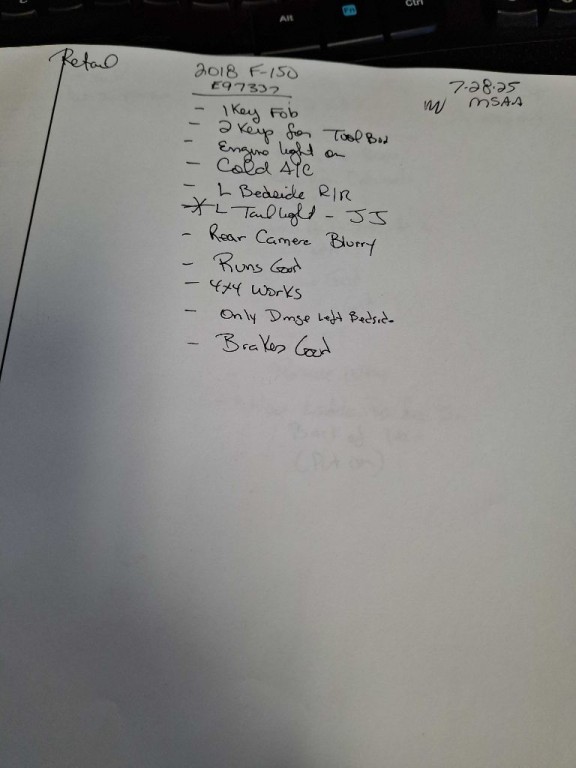 Alt
Fn
Ctrl
Retail
2018 F-150
E97337
7-28-25
MSAA
- 1 Key Fob
- 2 Keys for Tool Box
- Engine light on
- Cold A/C
- L Bedside R/R
* L Tail light - JJ
- Rear Camera Blurry
- Runs Good
- 4x4 Works
- Only Dmge Left Bedside
- Brakes Good